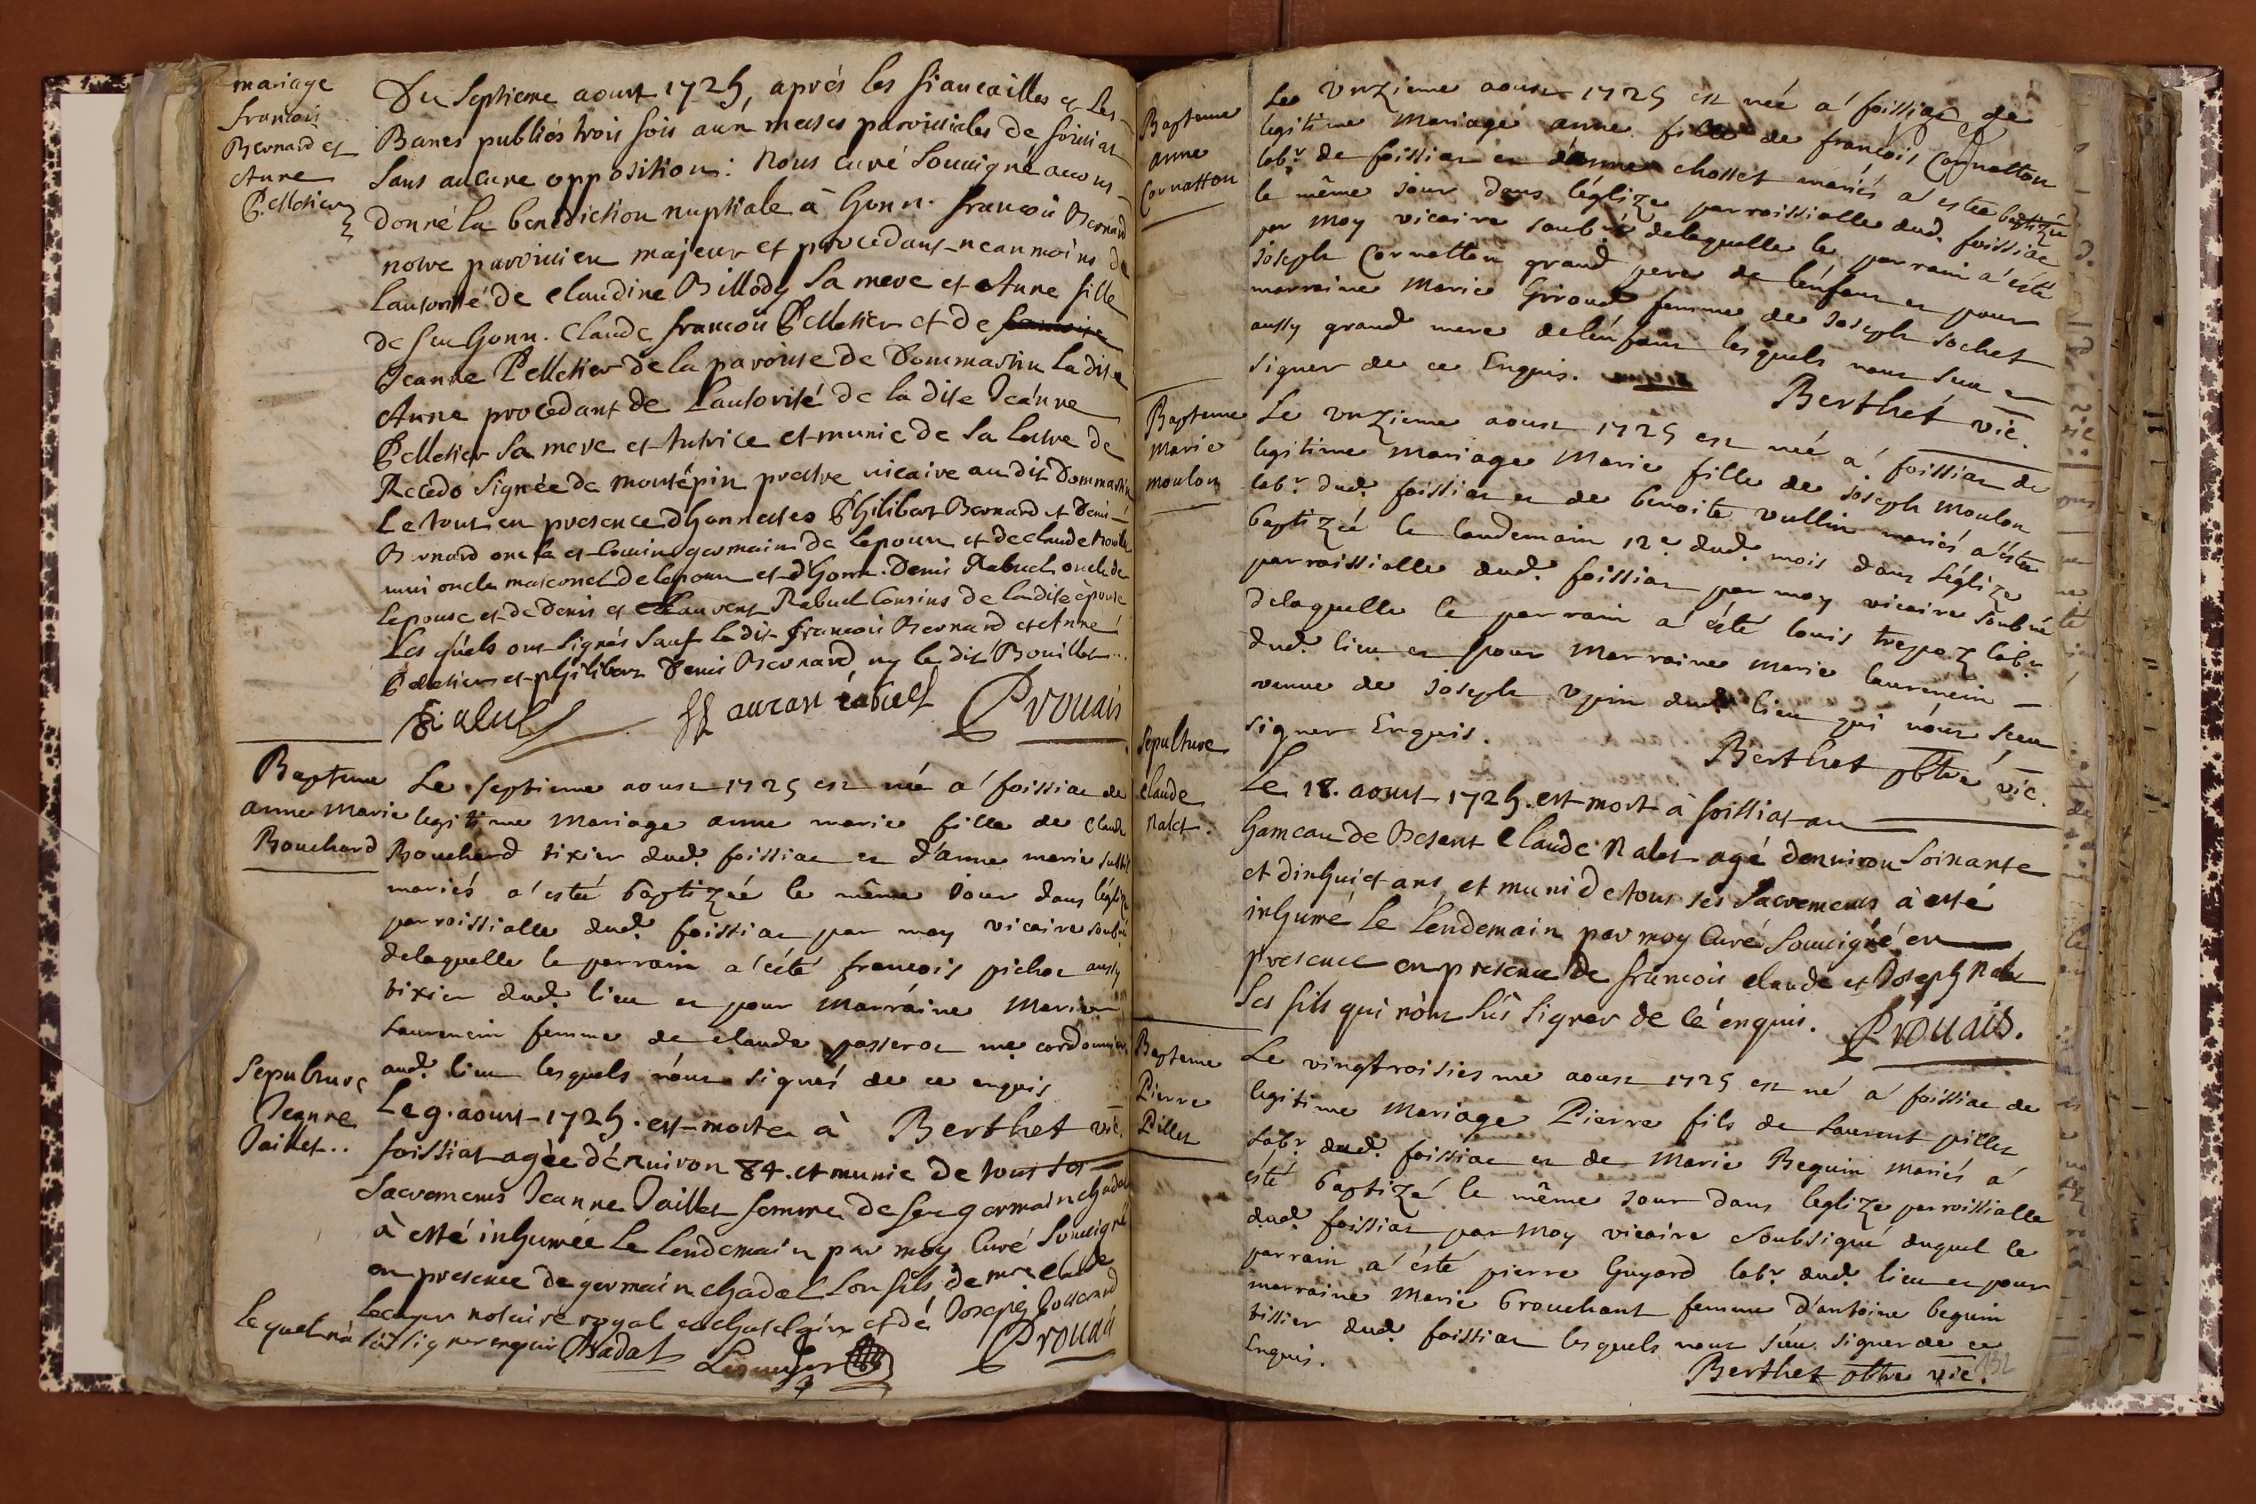 mariage
francois
Bernard et
Anne
Pelletier
Du Septieme aoust 1725, aprés les fiancailles et les
Bancs publiés trois fois aux messes paroissiales de foissiat
sans aucune opposition: Nous curé soussigné avons
donné la benediction nuptiale à honn. francois Bernard
notre paroissien majeur et procedant neanmoins de
lautorité de claudine Billody sa mere et Anne fille
de feu honn. Claude francois Pelletier et de
Jeanne Pelletier de la paroisse de Dommartin la dite
Anne procedant de Lautorité de la dite Jeanne
Pelletier sa mere et tutrice et munie de sa lettre de
Recedo signée de montépin prestre vicaire au dit Dommartin
Le tout en presence dhonnestes Philibert Bernard et Denis
Bernard oncle et cousin germain de lepoux et de claude
oncle maternel de lepoux et d'honn. Denis Rabuel oncle de
lepouse et de Denis et Laurent Rabuel Cousins de ladite épouse
Les quels ont signés sauf le dit francois Bernard et Anne
Pelletier et philibert Denis Bernard ny le dit Bouillet
Rabuel laurant rabuel Provais
Bapteme
anne Marie
Bouchard
Le septieme aoust 1725 est née a foissiac de
legitime Mariage anne marie fille de claude
Bouchard tixier dud. foissiac et d'anne marie
mariés a esté baptizée le même Jour dans léglize
parroissialle dud. foissiac par moy vicaire soubné
delaquelle le parrain a été francois pichoe aussy
tixier dud. lieu et pour Marraine Marie
Laurencin femme de claude passeroe me cordonnier
aud. lieu lesquels n'ont signés de ce enquis
Berthet vic.
Sepulture
Jeanne
Jaillet..
Le 9. aoust 1725. est morte à
foissiat agée dénviron 84. et munie de tous les
Sacremens Jeanne Jaillet femme de feu germain chadal
à esté inhumée le lendemain par moy Curé soussigné
en presence de germain chadal son fils de mre claude
Lecuyer notaire royal et chatelain et dé Joseph
Lequel nà sut signer enquis Chadal Lecuyer Provais
Bapteme
anne
Cornatton
Le Vnzieme aoust 1725 est née a foissiac de
legitime Mariage anne fille de françois Cornatton
labr. de foissiac et d'anne chosset mariés a estée baptizée
le même jour dans léglize parroissialle dud. foissiac
par moy vicaire soubné delaquelle le parrain a été
Joseph Cornatton grand pere de lenfant et pour
marraine Marie Giroud femme de Joseph sochet
aussy grand mere delénfant lesquels nont sceu
signer de ce Enquis.
Berthet vic.
Bapteme
Marie
moulon
Le Vnzieme aoust 1725 est née a foissiac de
legitime Mariage Marie fille de Joseph Moulon
labr. dud. foissiac et de benoite vullin mariés a été
baptizée le landemain 12e. dud. mois dans léglize
parroissialle dud. foissiac par moy vicaire soubné
delaquelle le parrain a été louis trepoz labr.
dud. lieu et pour Marraine Marie laurencin
veuve de Joseph Vpin dud. lieu qui n'ont sceu
signer Enquis.
Berthet pbtre vic.
Sepulture
claude
Nalet.
Le 18. aoust 1725. est mort à foissiat au
hameau de Besent Claude Nalet agé denviron Soixante
et dixhuict ans, et muni de tous ses Sacremens à esté
inhumé le lendemain par moy Curé soussigné en
presence en presence de francois claude et Joseph Nalet
ses fils qui nònt sus signer de cé enquis. Provais.
Bapteme
Pierre
Pillet
Le vingtroisiesme aoust 1725 est né a foissiac de
legitime Mariage Pierre fils de Laurent pillet
Labr. dud. foissiac et de Marie Beguin Mariés a
été baptizé le même jour dans leglize parroissialle
dud. foissiac par moy vicaire soubsigné duquel le
parrain a été pierre Guyard labr. dud. lieu et pour
marraine Marie brouchant femme d'antoine beguin
tissier dud. foissiac lesquels nont sceu signer de ce
Enquis.
Berthet pbtre vic.
132